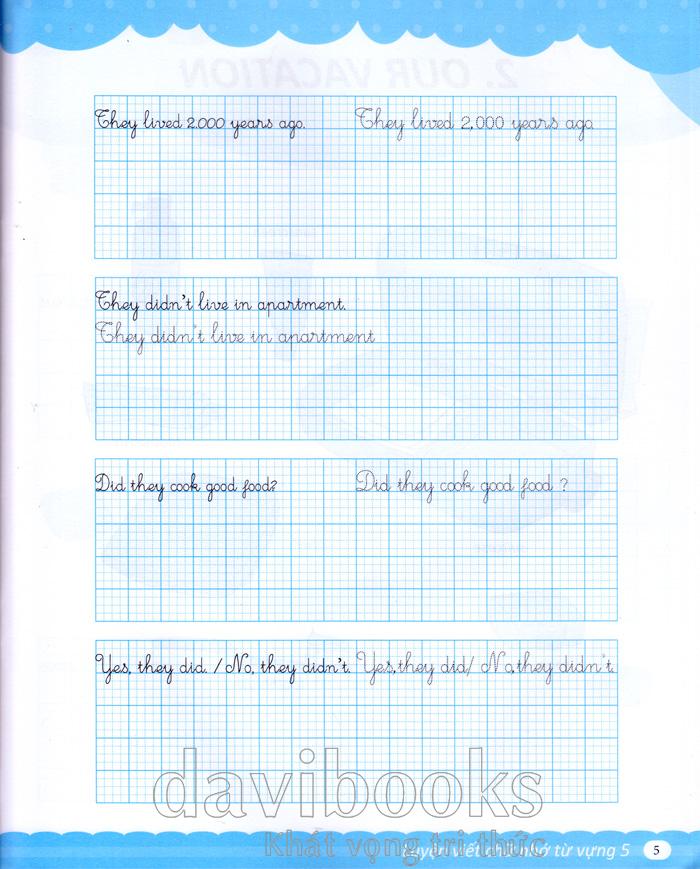 They lived 2.000 years ago. They lived 2,000 years ago
They didn't live in apartment.
They didn't live in anartment
Did they cook good food? Did they cook good food ?
Yes, they did. / No, they didn't. Yes,they did/ No,they didn't.
davibooks
Khát vọng tri thức
Luyện viết chữ nhớ từ vựng 5 5
2. OUR VACATION